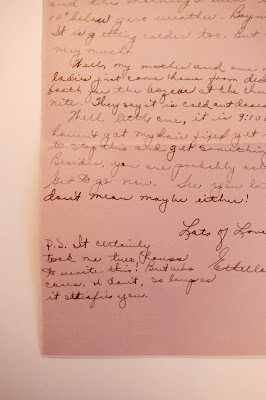 and this morning
10° below zero weather. Boy
It is getting colder too. But
very much.
Well, my mother and one
ladies just come home from
booth for the bazaar at the
nite. They say it is cold out doors
Well, it is 9:10
haven't got my hair fixed yet
to stop this and get something
Besides, you are probably
Got to go now. See you
don't mean maybe either!
Lots of Love
P.S. It certainly
took me two hours
to write this! But who
cares, I don't, so long as
it satisfies you.